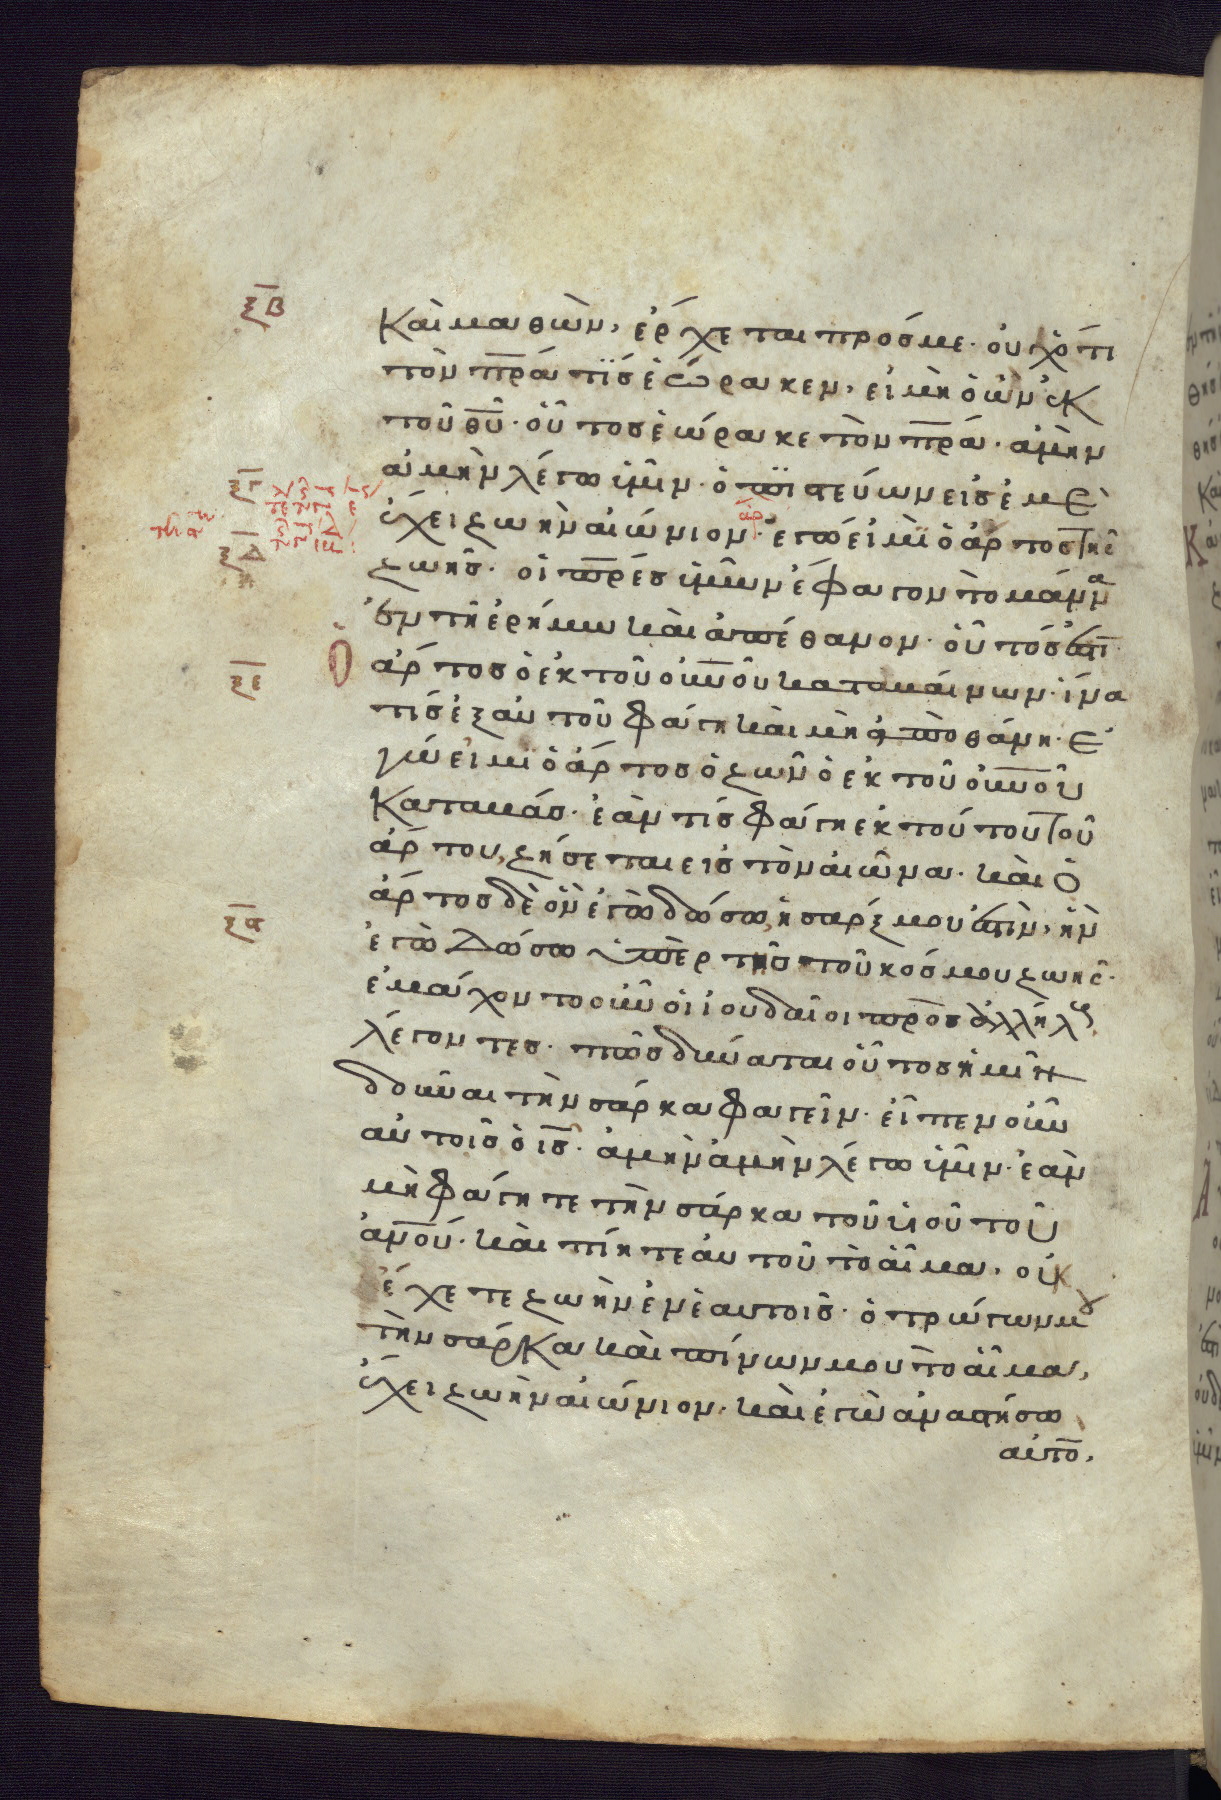 ξβ
καὶ μαθὼν, ἔρχεται πρόσ με· οὐχ ὅτι
τὸν πρ̅α τὶσ ἑώρακεν, εἰ μὴ ὁ ὢν ἐκ
τοῦ θυ̅· οὗτοσ ἑώρακε τὸν πρ̅α· ἀμὴν
ἀμὴν λέγω ὑμῖν· ὁ πιστεύων εἰσ ἐμὲ
ἔχει ζωὴν αἰώνιον· ἐγώ εἰμι ὁ ἄρτοσ τῆσ
ξδ
ζωῆσ· οἱ πρ̅εσ ὑμῶν ἔφαγον τὸ μάννα
ἐν τῆ ἐρήμω καὶ ἀπέθανον· οὗτόσ ἐστιν
ξε
ὁ ἄρτοσ ὁ ἐκ τοῦ οὐν̅οῦ καταβαίνων· ἵνα
τίσ ἐξ αὐτοῦ φάγη καὶ μὴ ἀποθάνη· ἐ
γώ εἰμι ὁ ἄρτοσ ὁ ζῶν ὁ ἐκ τοῦ οὐν̅οῦ
καταβάσ· ἐάν τισ φάγη ἐκ τούτου τοῦ
ἄρτου, ζήσεται εἰσ τὸν αἰῶνα· καὶ ὁ
ἄρτοσ δὲ ὃν ἐγὼ δώσω, ἡ σάρξ μου ἐστὶν, ἣν
ἐγὼ δώσω ὑπὲρ τῆσ τοῦ κόσμου ζωῆσ·
ἐμάχοντο οὖν οἱ ἰουδαῖοι πρὸσ ἀλλήλουσ
λέγοντεσ· πῶσ δύναται οὗτοσ ἡμῖν
δοῦναι τὴν σάρκα φαγεῖν· εἶπεν οὖν
αὐτοῖσ ὁ ισ̅· ἀμὴν ἀμὴν λέγω ὑμῖν· ἐὰν
μὴ φάγητε τὴν σάρκα τοῦ υἱοῦ τοῦ
ἀν̅ου· καὶ πίητε αὐτοῦ τὸ αἷμα, οὐκ
ἔχετε ζωὴν ἐν ἑαυτοῖσ· ὁ τρώγων μου
τὴν σάρκα καὶ πίνων μου τὸ αἷμα,
ἔχει ζωὴν αἰώνιον· καὶ ἐγὼ ἀναστήσω
αὐτὸ̅,